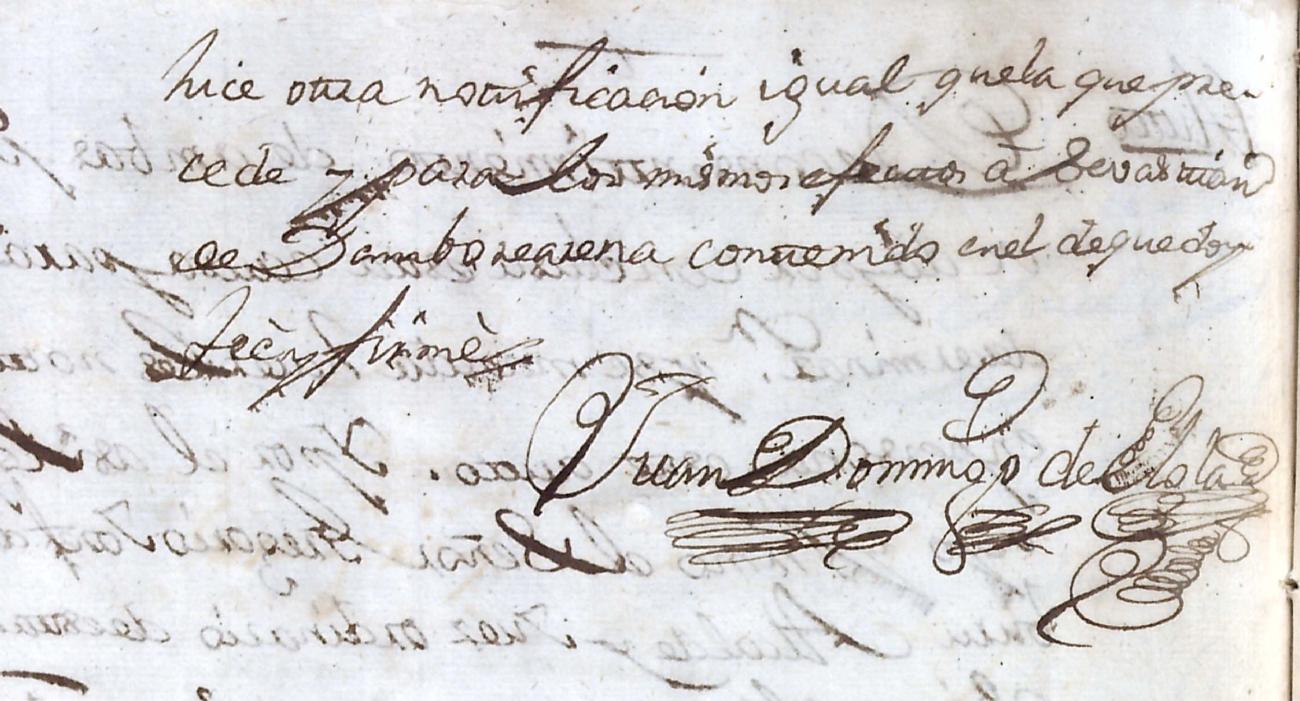 hice otra notificación igual quela que pre-
cede y para los mismos efectos a Sevastián
de Zamborearena contenido enel deque doy
feè y firmè
Juan Domingo de